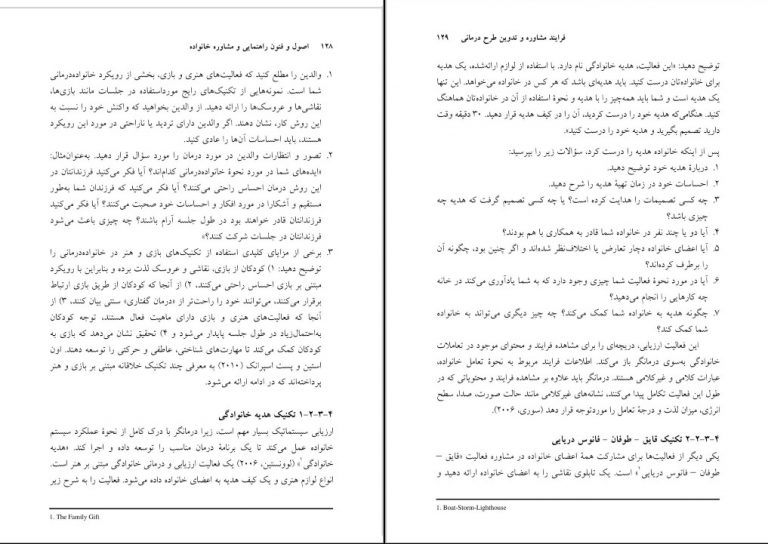 ۱۲۸ اصول و فنون راهنمایی و مشاوره خانواده
۱. والدین را مطلع کنید که فعالیت‌های هنری و بازی، بخشی از رویکرد خانواده‌درمانی
شما است. نمونه‌هایی از تکنیک‌های رایج مورداستفاده در جلسات مانند بازی‌ها،
نقاشی‌ها و عروسک‌ها را ارائه دهید. از والدین بخواهید که واکنش خود را نسبت به
این روش کار، نشان دهند. اگر والدین دارای تردید یا ناراحتی در مورد این رویکرد
هستند، باید احساسات آن‌ها را عادی کنید.
۲. تصور و انتظارات والدین در مورد درمان را مورد سؤال قرار دهید. به‌عنوان‌مثال:
«ایده‌های شما در مورد نحوهٔ خانواده‌درمانی کدام‌اند؟ آیا فکر می‌کنید فرزندانتان در
این روش درمان احساس راحتی می‌کنند؟ آیا فکر می‌کنید که فرزندان شما به‌طور
مستقیم و آشکارا در مورد افکار و احساسات خود صحبت می‌کنند؟ آیا فکر می‌کنید
فرزندانتان قادر خواهند بود در طول جلسه آرام باشند؟ چه چیزی باعث می‌شود
فرزندانتان در جلسات شرکت کنند؟»
۳. برخی از مزایای کلیدی استفاده از تکنیک‌های بازی و هنر در خانواده‌درمانی را
توضیح دهید: ۱) کودکان از بازی، نقاشی و عروسک لذت برده و بنابراین با رویکرد
مبتنی بر بازی احساس راحتی می‌کنند، ۲) از آنجا که کودکان از طریق بازی ارتباط
برقرار می‌کنند، می‌توانند خود را راحت‌تر از «درمان گفتاری» سنتی بیان کنند، ۳) از
آنجا که فعالیت‌های هنری و بازی دارای ماهیت فعال هستند، توجه کودکان
به‌احتمال‌زیاد در طول جلسه پایدار می‌شود و ۴) تحقیق نشان می‌دهد که بازی به
کودکان کمک می‌کند تا مهارت‌های شناختی، عاطفی و حرکتی را توسعه دهند. اون
استین و پست اسپرانک (۲۰۱۰) به معرفی چند تکنیک خلاقانه مبتنی بر بازی و هنر
پرداخته‌اند که در ادامه ارائه می‌شود.
۴-۳-۲-۱ تکنیک هدیه خانوادگی
ارزیابی سیستماتیک بسیار مهم است، زیرا درمانگر با درک کامل از نحوهٔ عملکرد سیستم
خانواده عمل می‌کند تا یک برنامهٔ درمان مناسب را توسعه داده و اجرا کند. «هدیه
خانوادگی۱» (لوونستین، ۲۰۰۶) یک فعالیت ارزیابی و درمانی خانوادگی مبتنی بر هنر است.
انواع لوازم هنری و یک کیف هدیه به اعضای خانواده داده می‌شود. فعالیت را به شرح زیر
1. The Family Gift
فرایند مشاوره و تدوین طرح درمانی ۱۲۹
توضیح دهید: «این فعالیت، هدیه خانوادگی نام دارد. با استفاده از لوازم ارائه‌شده، یک هدیه
برای خانواده‌تان درست کنید. باید هدیه‌ای باشد که هر کس در خانواده می‌خواهد. این تنها
یک هدیه است و شما باید همه‌چیز را با هدیه و نحوهٔ استفاده از آن در خانواده‌تان هماهنگ
کنید. هنگامی‌که هدیه خود را درست کردید، آن را در کیف هدیه قرار دهید. ۳۰ دقیقه وقت
دارید تصمیم بگیرید و هدیه خود را درست کنید».
پس از اینکه خانواده هدیه را درست کرد، سؤالات زیر را بپرسید:
۱. دربارهٔ هدیه خود توضیح دهید.
۲. احساسات خود در زمان تهیهٔ هدیه را شرح دهید.
۳. چه کسی تصمیمات را هدایت کرده است؟ یا چه کسی تصمیم گرفت که هدیه چه
چیزی باشد؟
۴. آیا دو یا چند نفر در خانواده شما قادر به همکاری با هم بودند؟
۵. آیا اعضای خانواده دچار تعارض یا اختلاف‌نظر شده‌اند و اگر چنین بود، چگونه آن
را برطرف کرده‌اند؟
۶. آیا در مورد نحوهٔ فعالیت شما چیزی وجود دارد که به شما یادآوری می‌کند در خانه
چه کارهایی را انجام می‌دهید؟
۷. چگونه هدیه به خانواده شما کمک می‌کند؟ چه چیز دیگری می‌تواند به خانواده
شما کمک کند؟
این فعالیت ارزیابی، دریچه‌ای را برای مشاهده فرایند و محتوای موجود در تعاملات
خانوادگی به‌سوی درمانگر باز می‌کند. اطلاعات فرایند مربوط به نحوهٔ تعامل خانواده،
عبارات کلامی و غیرکلامی هستند. درمانگر باید علاوه بر مشاهده فرایند و محتویاتی که در
طول این فعالیت تکامل پیدا می‌کنند، نشانه‌های غیرکلامی مانند حالت صورت، صدا، سطح
انرژی، میزان لذت و درجهٔ تعامل را موردتوجه قرار دهد (سوری، ۲۰۰۶).
۴-۳-۲-۲ تکنیک قایق - طوفان - فانوس دریایی
یکی دیگر از فعالیت‌ها برای مشارکت همهٔ اعضای خانواده در مشاوره فعالیت «قایق –
طوفان – فانوس دریایی۱» است. یک تابلوی نقاشی را به اعضای خانواده ارائه دهید و
1. Boat-Storm-Lighthouse